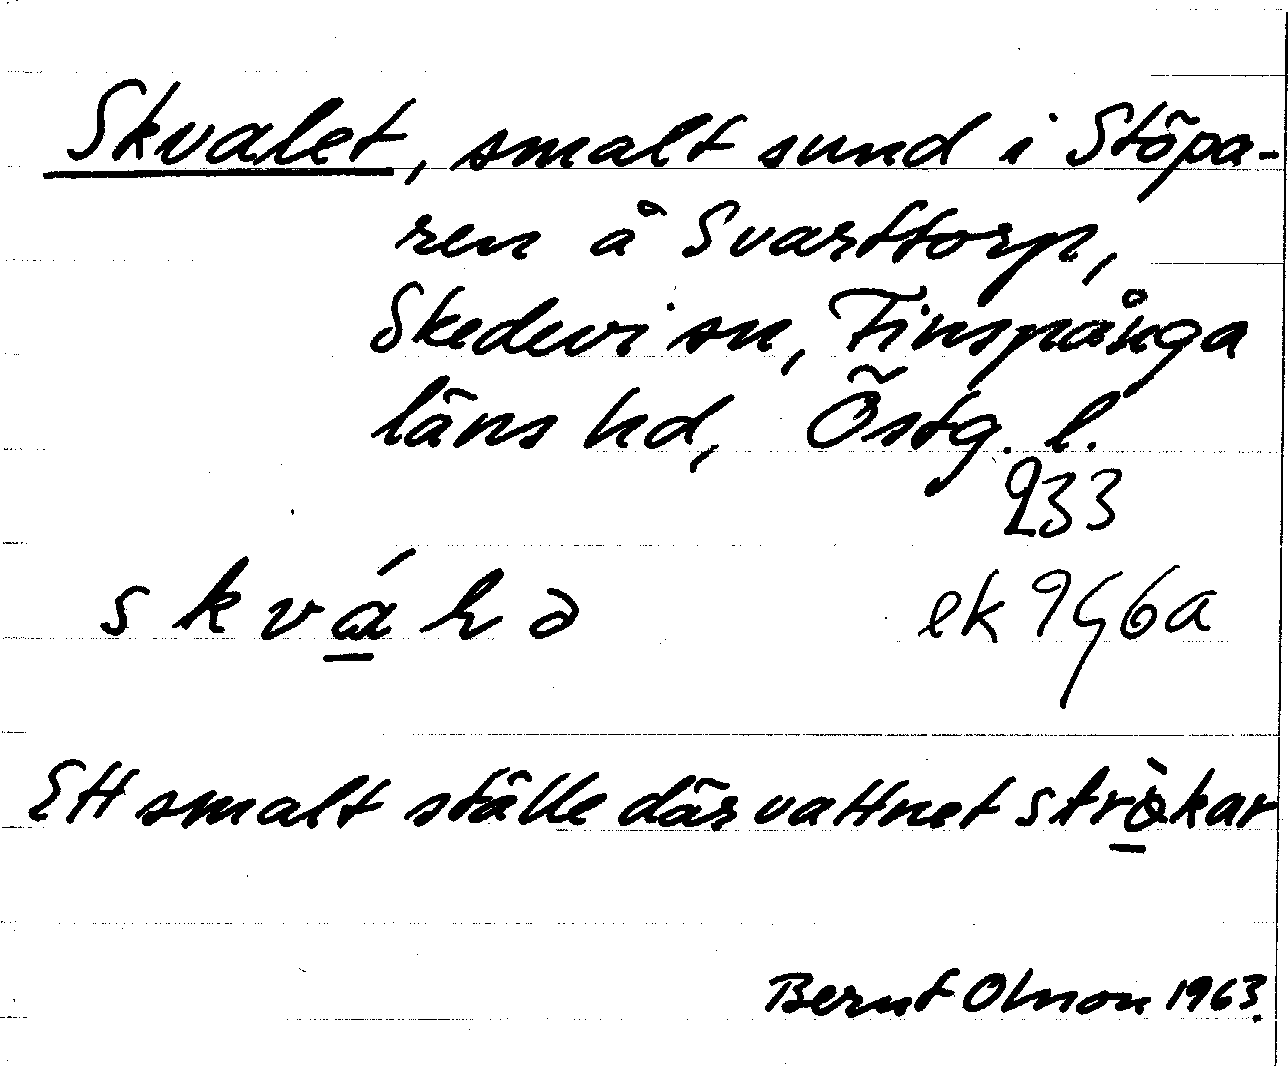 Skvalet, smalt sund i Stöpa-
ren å Svarttorp,
Skedevi sn, Finspånga
läns hd, Östg. l.
233
skváḷə
ek 9G6a
Ett smalt ställe där vattnet strò̱kar
Bernt Olsson 1963.